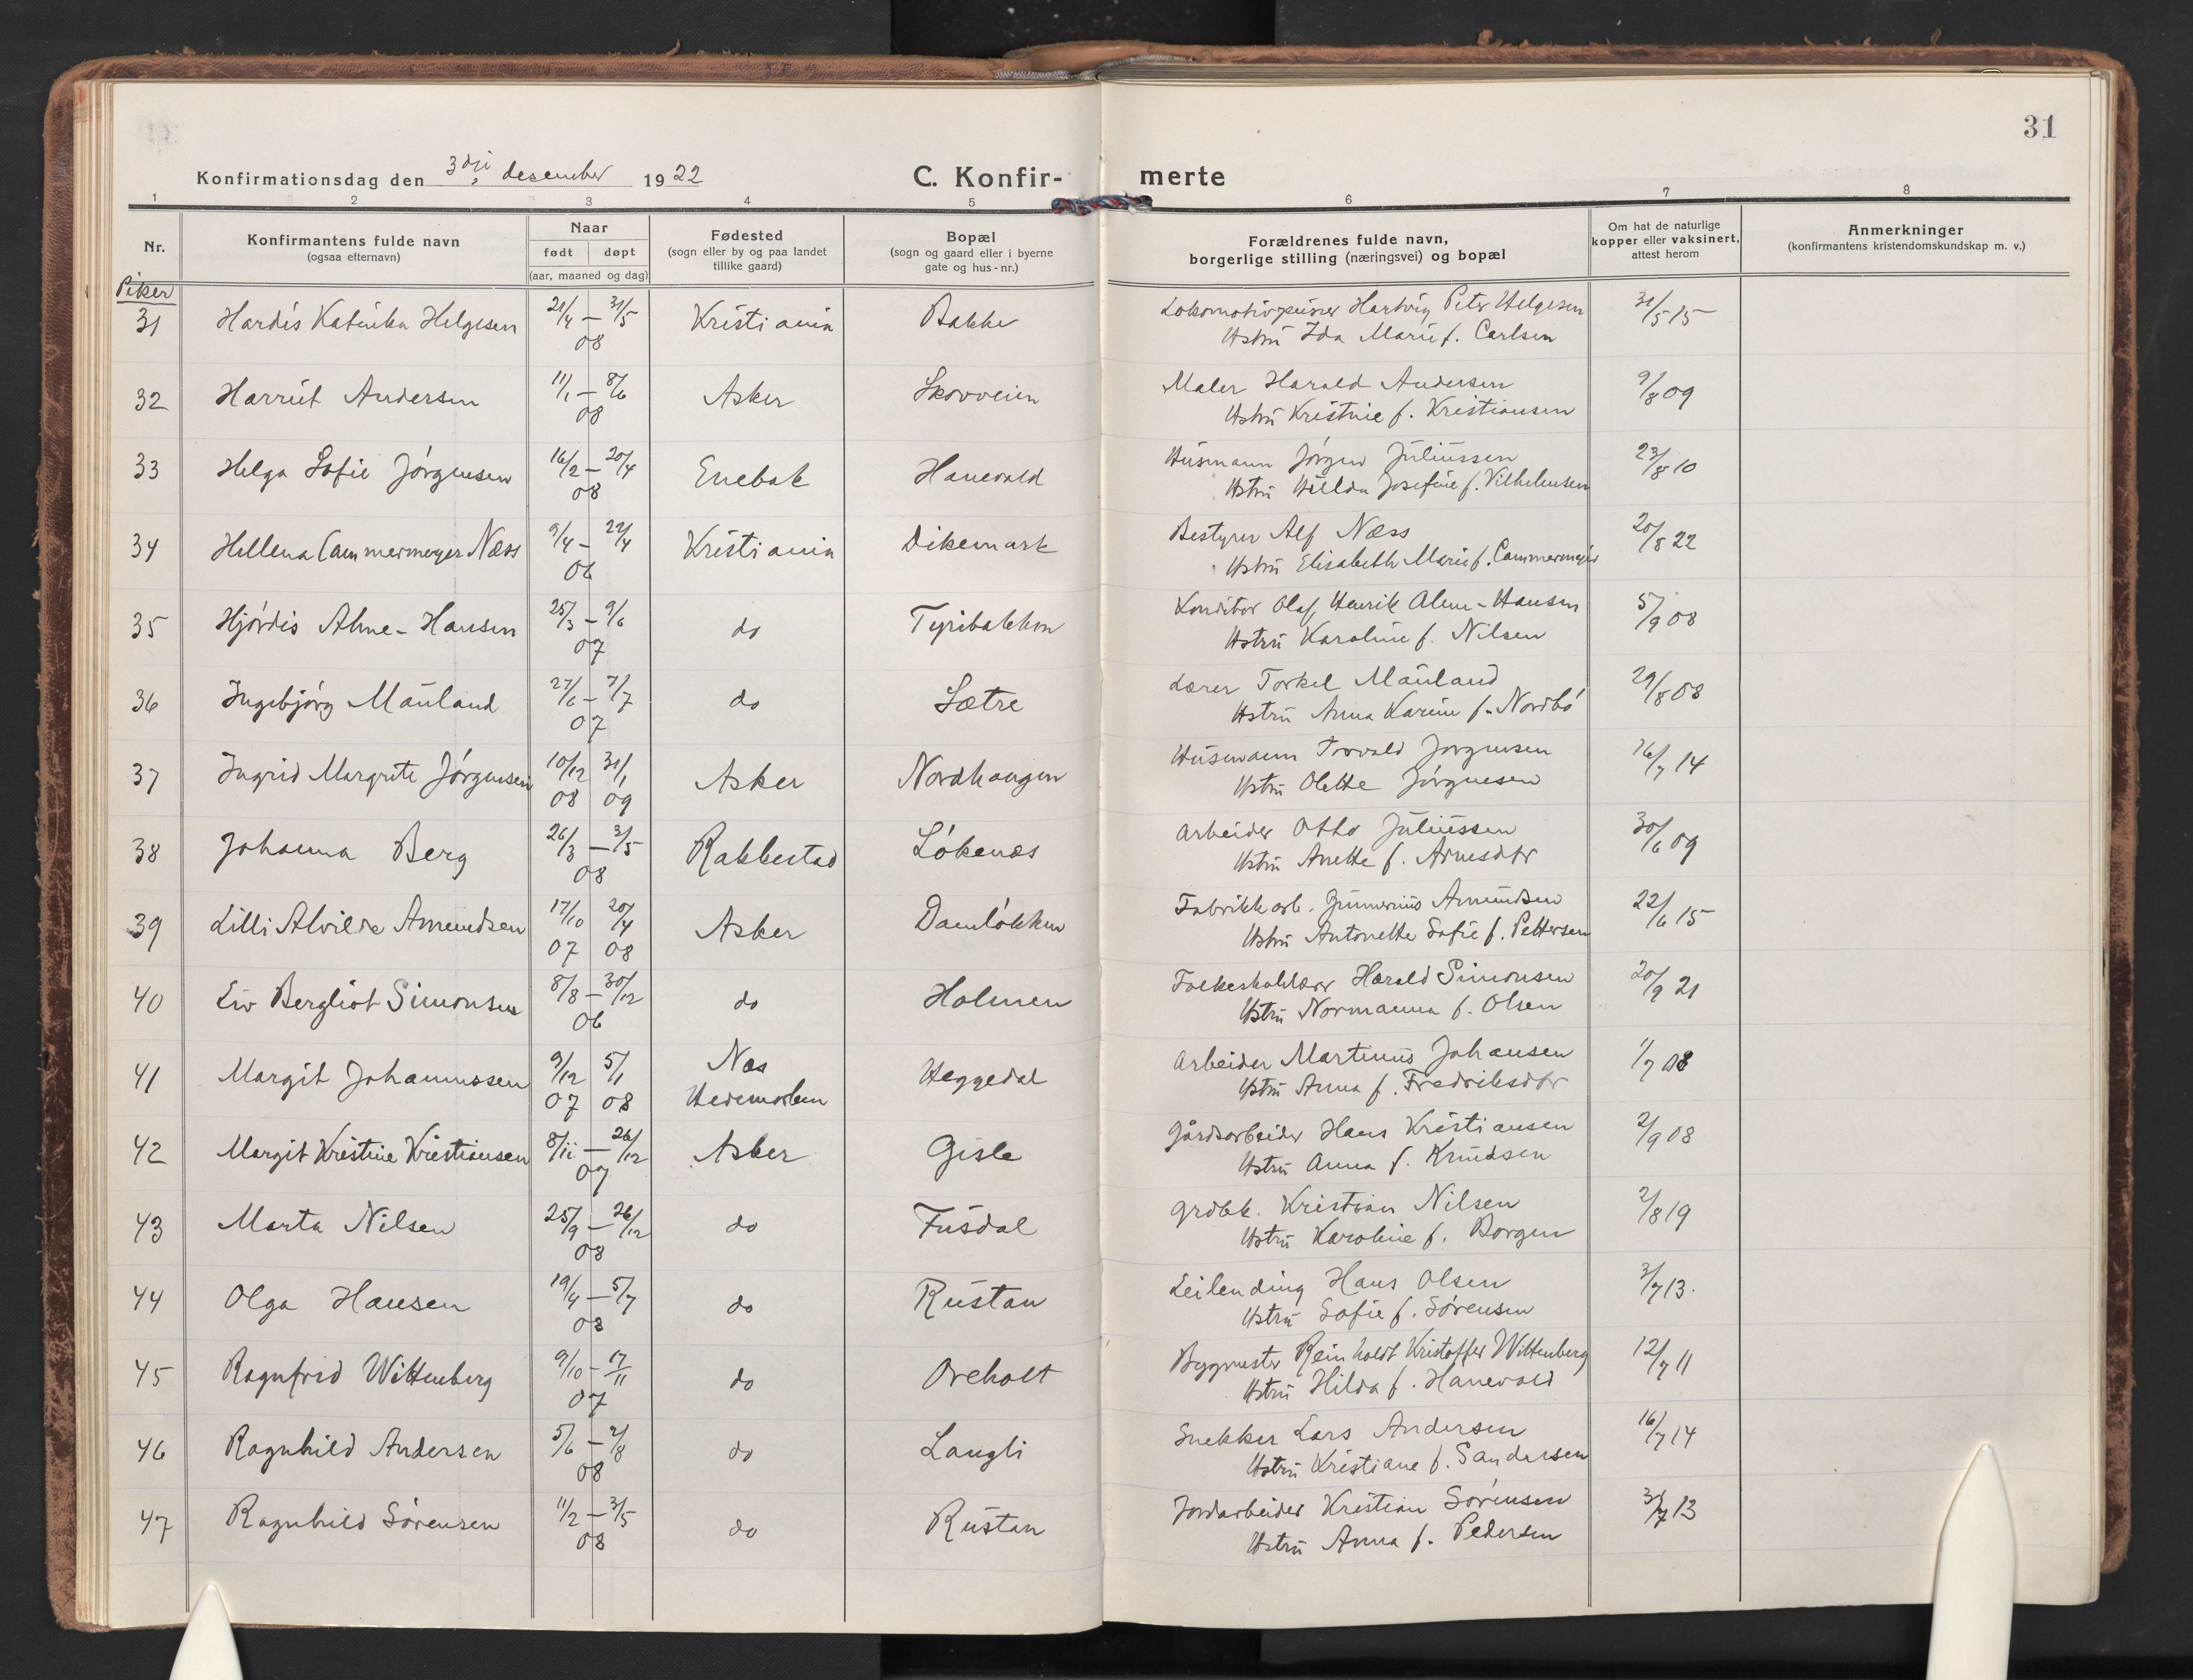 31
Konfirmationsdag den 3dje desember 1922
C. Konfirmerte
1 2 3 4 5 6 7 8
Nr.
Konfirmantens fulde navn
(ogsaa efternavn)
Naar
født døpt
(aar, maaned og dag)
Fødested
(sogn eller by og paa landet
tillike gaard)
Bopæl
(sogn og gaard eller i byerne
gate og hus-nr.)
Forældrenes fulde navn,
borgerlige stilling (næringsvei) og bopæl
Om hat de naturlige
kopper eller vaksinert,
attest herom
Anmerkninger
(konfirmantens kristendomskundskap m. v.)
Piker
31 Hardis Katinka Helgesen 21/4 – 31/5 08 Kristiania Bakke Lokomotivpusser Hartvig Peter Helgesen 31/5 15
Hstru Ida Marie f. Carlsen
32 Harriet Andersen 11/1 – 8/6 08 Asker Skovveien Maler Harald Andersen 9/8 09
Hstru Kristine f. Kristiansen
33 Helga Sofie Jörgensen 16/2 – 20/4 08 Enebak Hanevold Husmann Jörgen Juliussen 23/8 10
Hstru Hilda Josefine f. Vilhelmsen
34 Hellena Cammermeyer Næss 9/4 – 22/4 06 Kristiania Dikemark Bestyrer Alf Næss 20/8 22
Hstru Elisabeth Marie f. Cammermeyer
35 Hjördis Alme-Hansen 25/3 – 9/6 07 do Tyribakken Konditor Olaf Henrik Alme-Hansen 5/9 08
Hstru Karoline f. Nilsen
36 Ingebjörg Mauland 27/6 – 7/7 07 do Sætre Lærer Torkel Mauland 29/8 08
Hstru Anna Karine f. Nordbö
37 Ingrid Margrete Jörgensen 10/12 08 31/1 09 Asker Nordhaugen Husmann Torvald Jorgensen 16/7 14
Hstru Olette Jörgensen
38 Johanna Berg 26/3 – 3/5 08 Rakkestad Lökenæs Arbeider Otto Juliussen 30/6 09
Hstru Anette f. Arnesdtr
39 Lilli Alvilde Amundsen 17/10 07 20/4 08 Asker Damlökken Fabrikkarb. Gunnerius Amundsen 22/6 15
Hstru Antonette Sofie f. Pettersen
40 Liv Bergliot Simonsen 8/8 – 30/12 06 do Holmen Folkeskolelærer Harald Simonsen 20/9 21
Hstru Normanna f. Olsen
41 Margit Johannessen 9/12 07 5/1 08 Nes Hedemarken Heggedal Arbeider Martinus Johansen 1/7 08
Hstru Anna f. Fredriksdtr
42 Margit Kristine Kristiansen 8/11 – 26/12 07 Asker Gisle Gårdsarbeider Hans Kristiansen 2/9 08
Hstru Anna f. Knudsen
43 Marta Nilsen 25/9 – 26/12 08 do Fusdal Grdbk. Kristian Nilsen 2/8 19
Hstru Karoline f. Borgen
44 Olga Hansen 19/4 – 5/7 08 do Rustan Leilending Hans Olsen 3/7 13.
Hstru Sofie f. Sörensen
45 Ragnfrid Wittenberg 9/10 – 17/11 07 do Oreholt Byggmester Reinholdt Kristoffer Wittenberg 12/7 11
Hstru Hilda f. Hanevold
46 Ragnhild Andersen 5/6 – 2/8 08 do Langli Snekker Lars Andersen 16/7 14
Hstru Kristiane f. Sandersen
47 Ragnhild Sörensen 11/2 – 3/5 08 do Rustan Jordarbeider Kristian Sörensen 3/7 13
Hstru Anna f. Pedersen